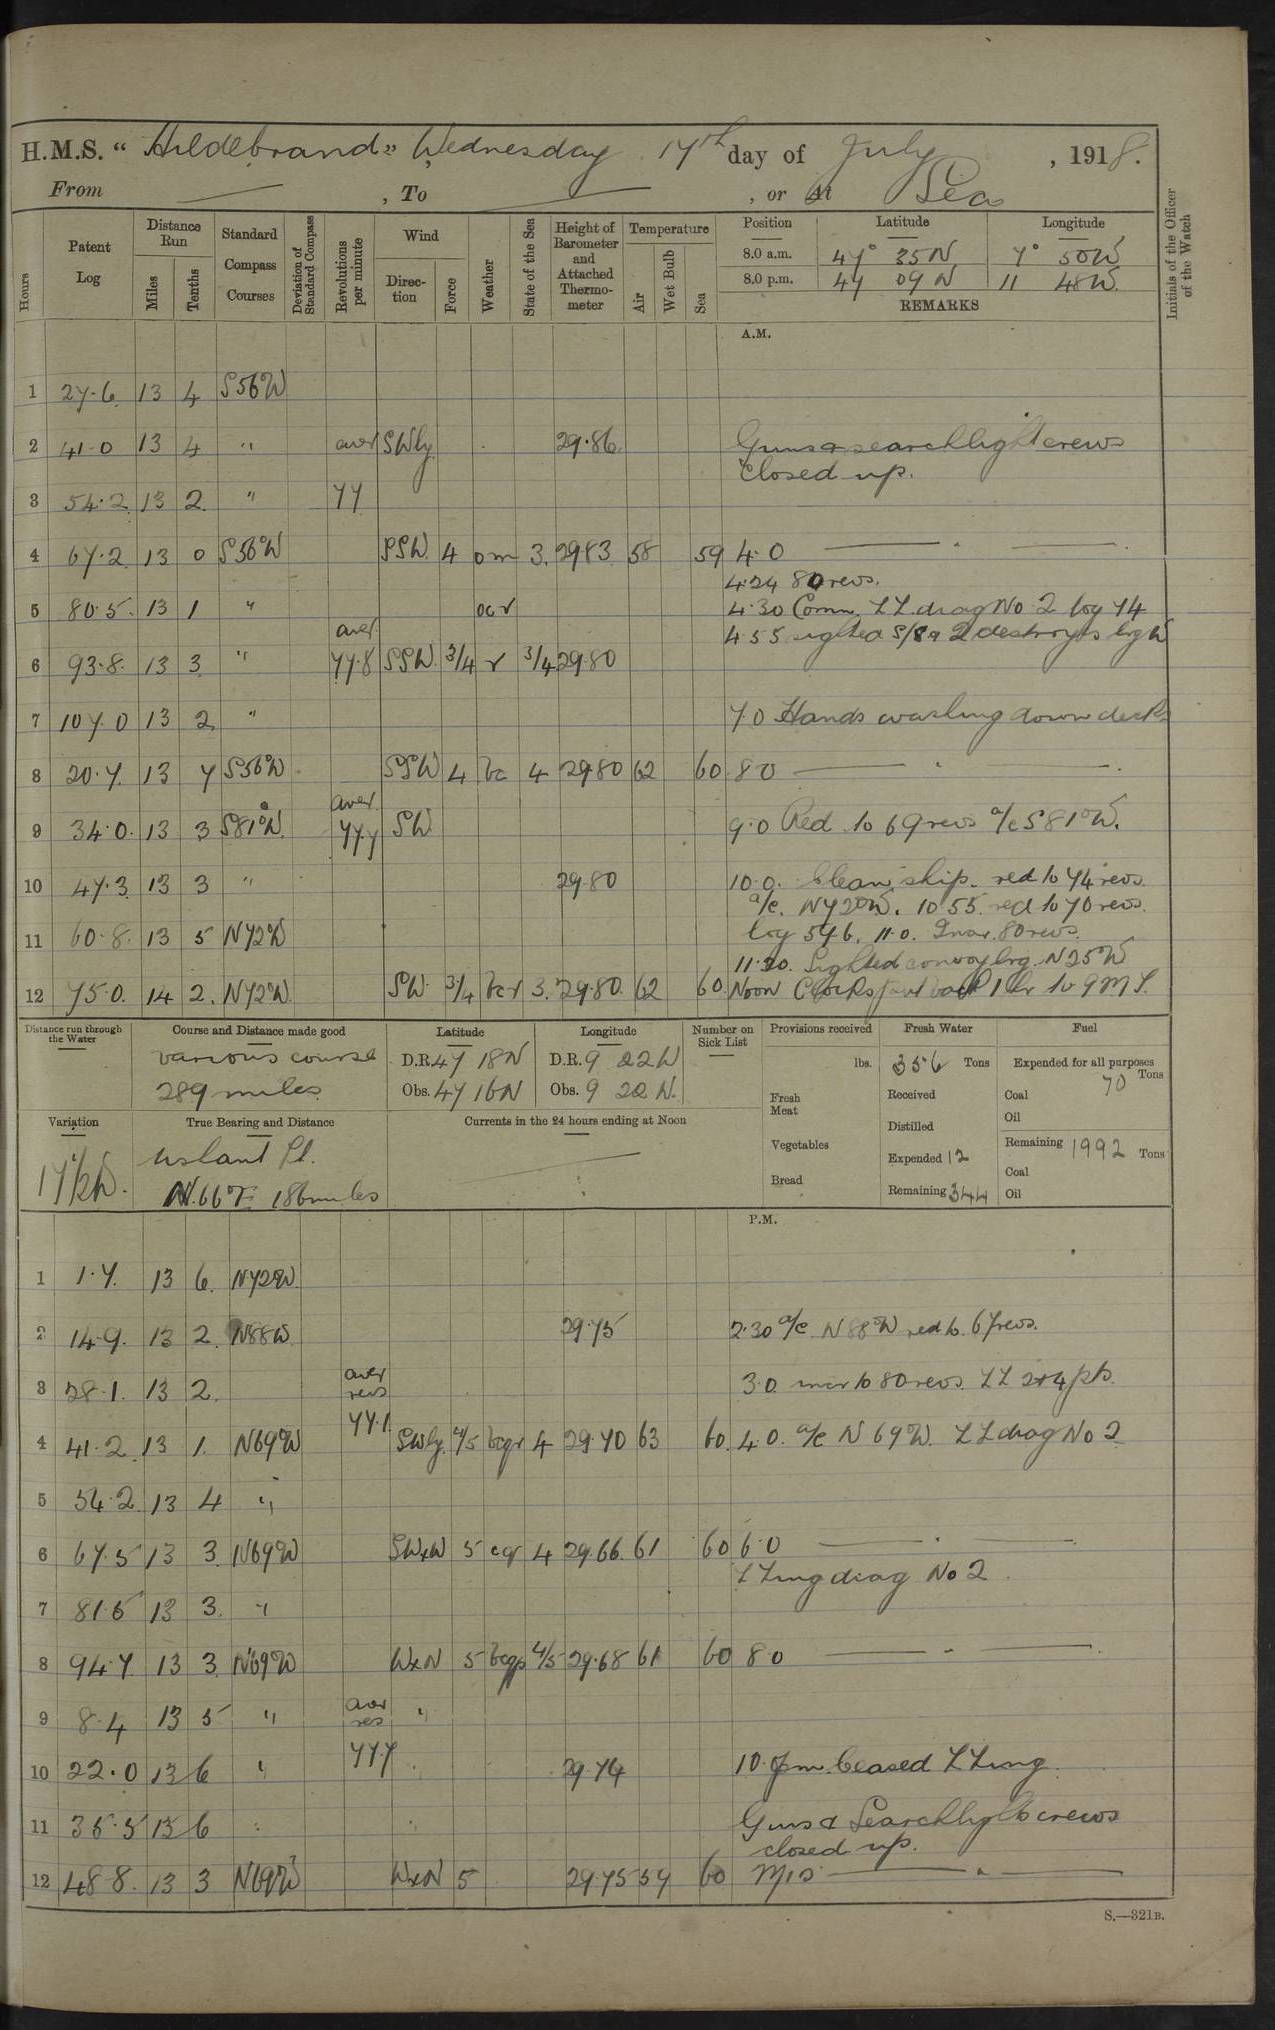 H.M.S. “ Hildebrand ” Wednesday 17th day of July , 1918.
From — , To — , or At Sea
Hours
Patent Log
Distance Run
Miles
Tenths
Standard Compass Courses
Deviation of Standard Compass
Revolutions per minute
Wind
Direction
Force
Weather
State of the Sea
Height of Barometer and Attached Thermometer
Temperature
Air
Wet Bulb
Sea
Position Latitude Longitude
8.0 a.m. 47° 35 N 7° 50 W
8.0 p.m. 47 09 N 11 48 W
REMARKS
Initials of the Officer of the Watch
A.M.
1 27.6 13 4 S56°W
2 41.0 13 4 " aver SWly 29.86 Guns & searchlight crews
closed up.
3 54.2 13 2 " 77
4 67.2 13 0 S56°W SSW 4 om 3 2983 58 59 4.0 — " —
4.24 80 revs.
5 80.5 13 1 " ocr 4.30 Comm. ZZ diag No 2 log 74
aver 4.55 sighted S/S & 2 destroyers brg W
6 93.8 13 3 " 77.8 SSW 3/4 r 3/4 29.80
7 107.0 13 2 " 7.0 Hands washing down decks
8 20.7 13 7 S56°W SSW 4 bc 4 2980 62 60 8.0 — " —
aver
9 34.0 13 3 S81°W 77.7 SW 9.0 Red to 69 revs a/c S81°W.
10 47.3 13 3 " 29.80 10.0. Clean ship. red to 74 revs.
a/c. N72°W. 10.55. red to 70 revs.
11 60.8 13 5 N72°W log 59.6. 11.0. Incr. 80 revs.
11.20. Sighted convoy brg. N25°W
12 75.0 14 2 N72°W SW 3/4 bcr 3 29.80 62 60 Noon Clocks put back 1 hr to GMT.
Distance run through the Water
Course and Distance made good
various course
289 miles
Latitude
D.R. 47 18N
Obs. 47 16N
Longitude
D.R. 9 22W
Obs. 9 22 W.
Number on Sick List
Provisions received
lbs.
Fresh Meat
Vegetables
Bread
Fresh Water
356 Tons
Received
Distilled
Expended 12
Remaining 344
Fuel
Expended for all purposes
70 Tons
Coal
Oil
Remaining 1992 Tons
Coal
Oil
Variation
17½W.
True Bearing and Distance
Ushant Lt.
N.66°E 186 miles
Currents in the 24 hours ending at Noon
P.M.
1 1.7 13 6 N72W
2 14.9 13 2 N88W 29.75 2.30 a/c N88°W red to 67 revs.
3 28.1 13 2 aver revs 3.0 incr to 80 revs. ZZ 2 & 4 pts.
4 41.2 13 1 N69°W 77.1 SWly 4/5 bcqr 4 29.70 63 60 4.0 a/c N69°W. ZZ diag No 2
5 54.2 13 4 "
6 67.5 13 3 N69°W SWxW 5 cqr 4 29.66 61 60 6.0 — " —
ZZing diag No 2
7 81.5 13 3 "
8 94.7 13 3 N69°W WxN 5 bcqp 4/5 29.68 61 60 8.0 — " —
9 8.4 13 5 " aver res "
10 22.0 13 6 " 77.7 29.74 10.0 pm. Ceased ZZing
11 35.5 13 6 " Guns & Searchlight crews
closed up.
12 48.8 13 3 N69°W WxN 5 29.75 59 60 Mid — " —
S.—321B.